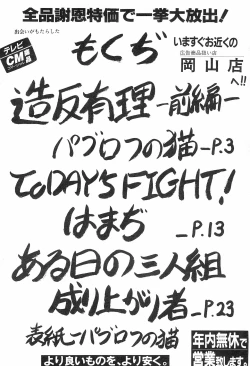 全品謝恩特価で一挙大放出!
出会いがもたらした
テレビ
CM
商品
もくぢ
いますぐお近くの
広告商品扱い店
岡山店
へ!!
造反有理 ー前編ー
パブロフの猫 ーP.3
TODAY'S FIGHT!
はまぢ ーP.13
ある日の三人組
成り上がり者 ーP.23
表紙ーパブロフの猫
より良いものを、より安く。
年内無休で
営業致します。